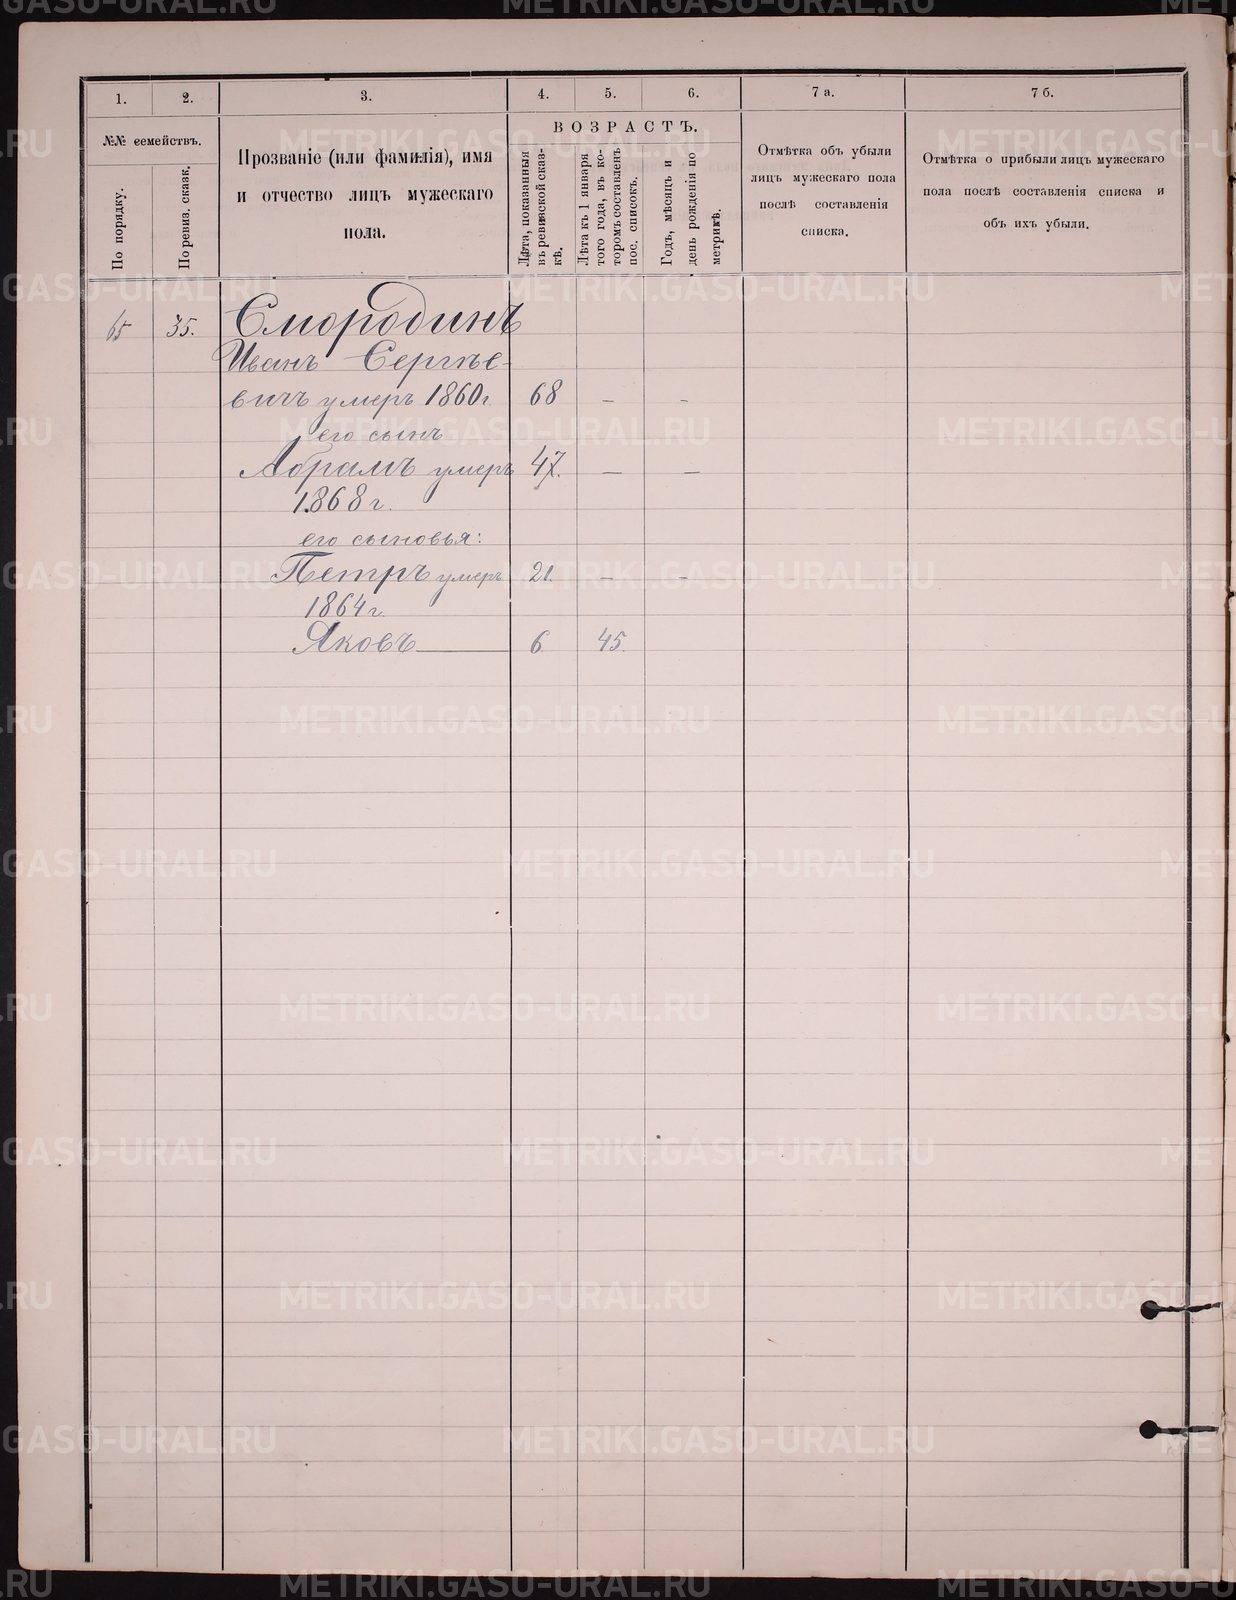 1. 2. 3. 4. 5. 6. 7 а. 7 б.
№№ семействъ.
По порядку.
По ревиз. сказк.
Прозваніе (или фамилія), имя
и отчество лицъ мужескаго
пола.
ВОЗРАСТЪ.
Лѣта, показанныя
въ ревизской сказ-
кѣ.
Лѣта къ 1 января
того года, въ ко-
торомъ составленъ
пос. списокъ.
Годъ, мѣсяцъ и
день рожденія по
метрикѣ.
Отмѣтка объ убыли
лицъ мужескаго пола
послѣ составленія
списка.
Отмѣтка о прибыли лицъ мужескаго
пола послѣ составленія списка и
объ ихъ убыли.
65 35. Смородинъ
Иванъ Сергѣе-
вичъ умеръ 1860 г. 68 – –
его сынъ
Абрамъ умеръ 47. – –
1868 г.
его сыновья:
Петръ умеръ 21. – –
1864 г.
Яковъ 6 45.
METRIKI.GASO-URAL.RU